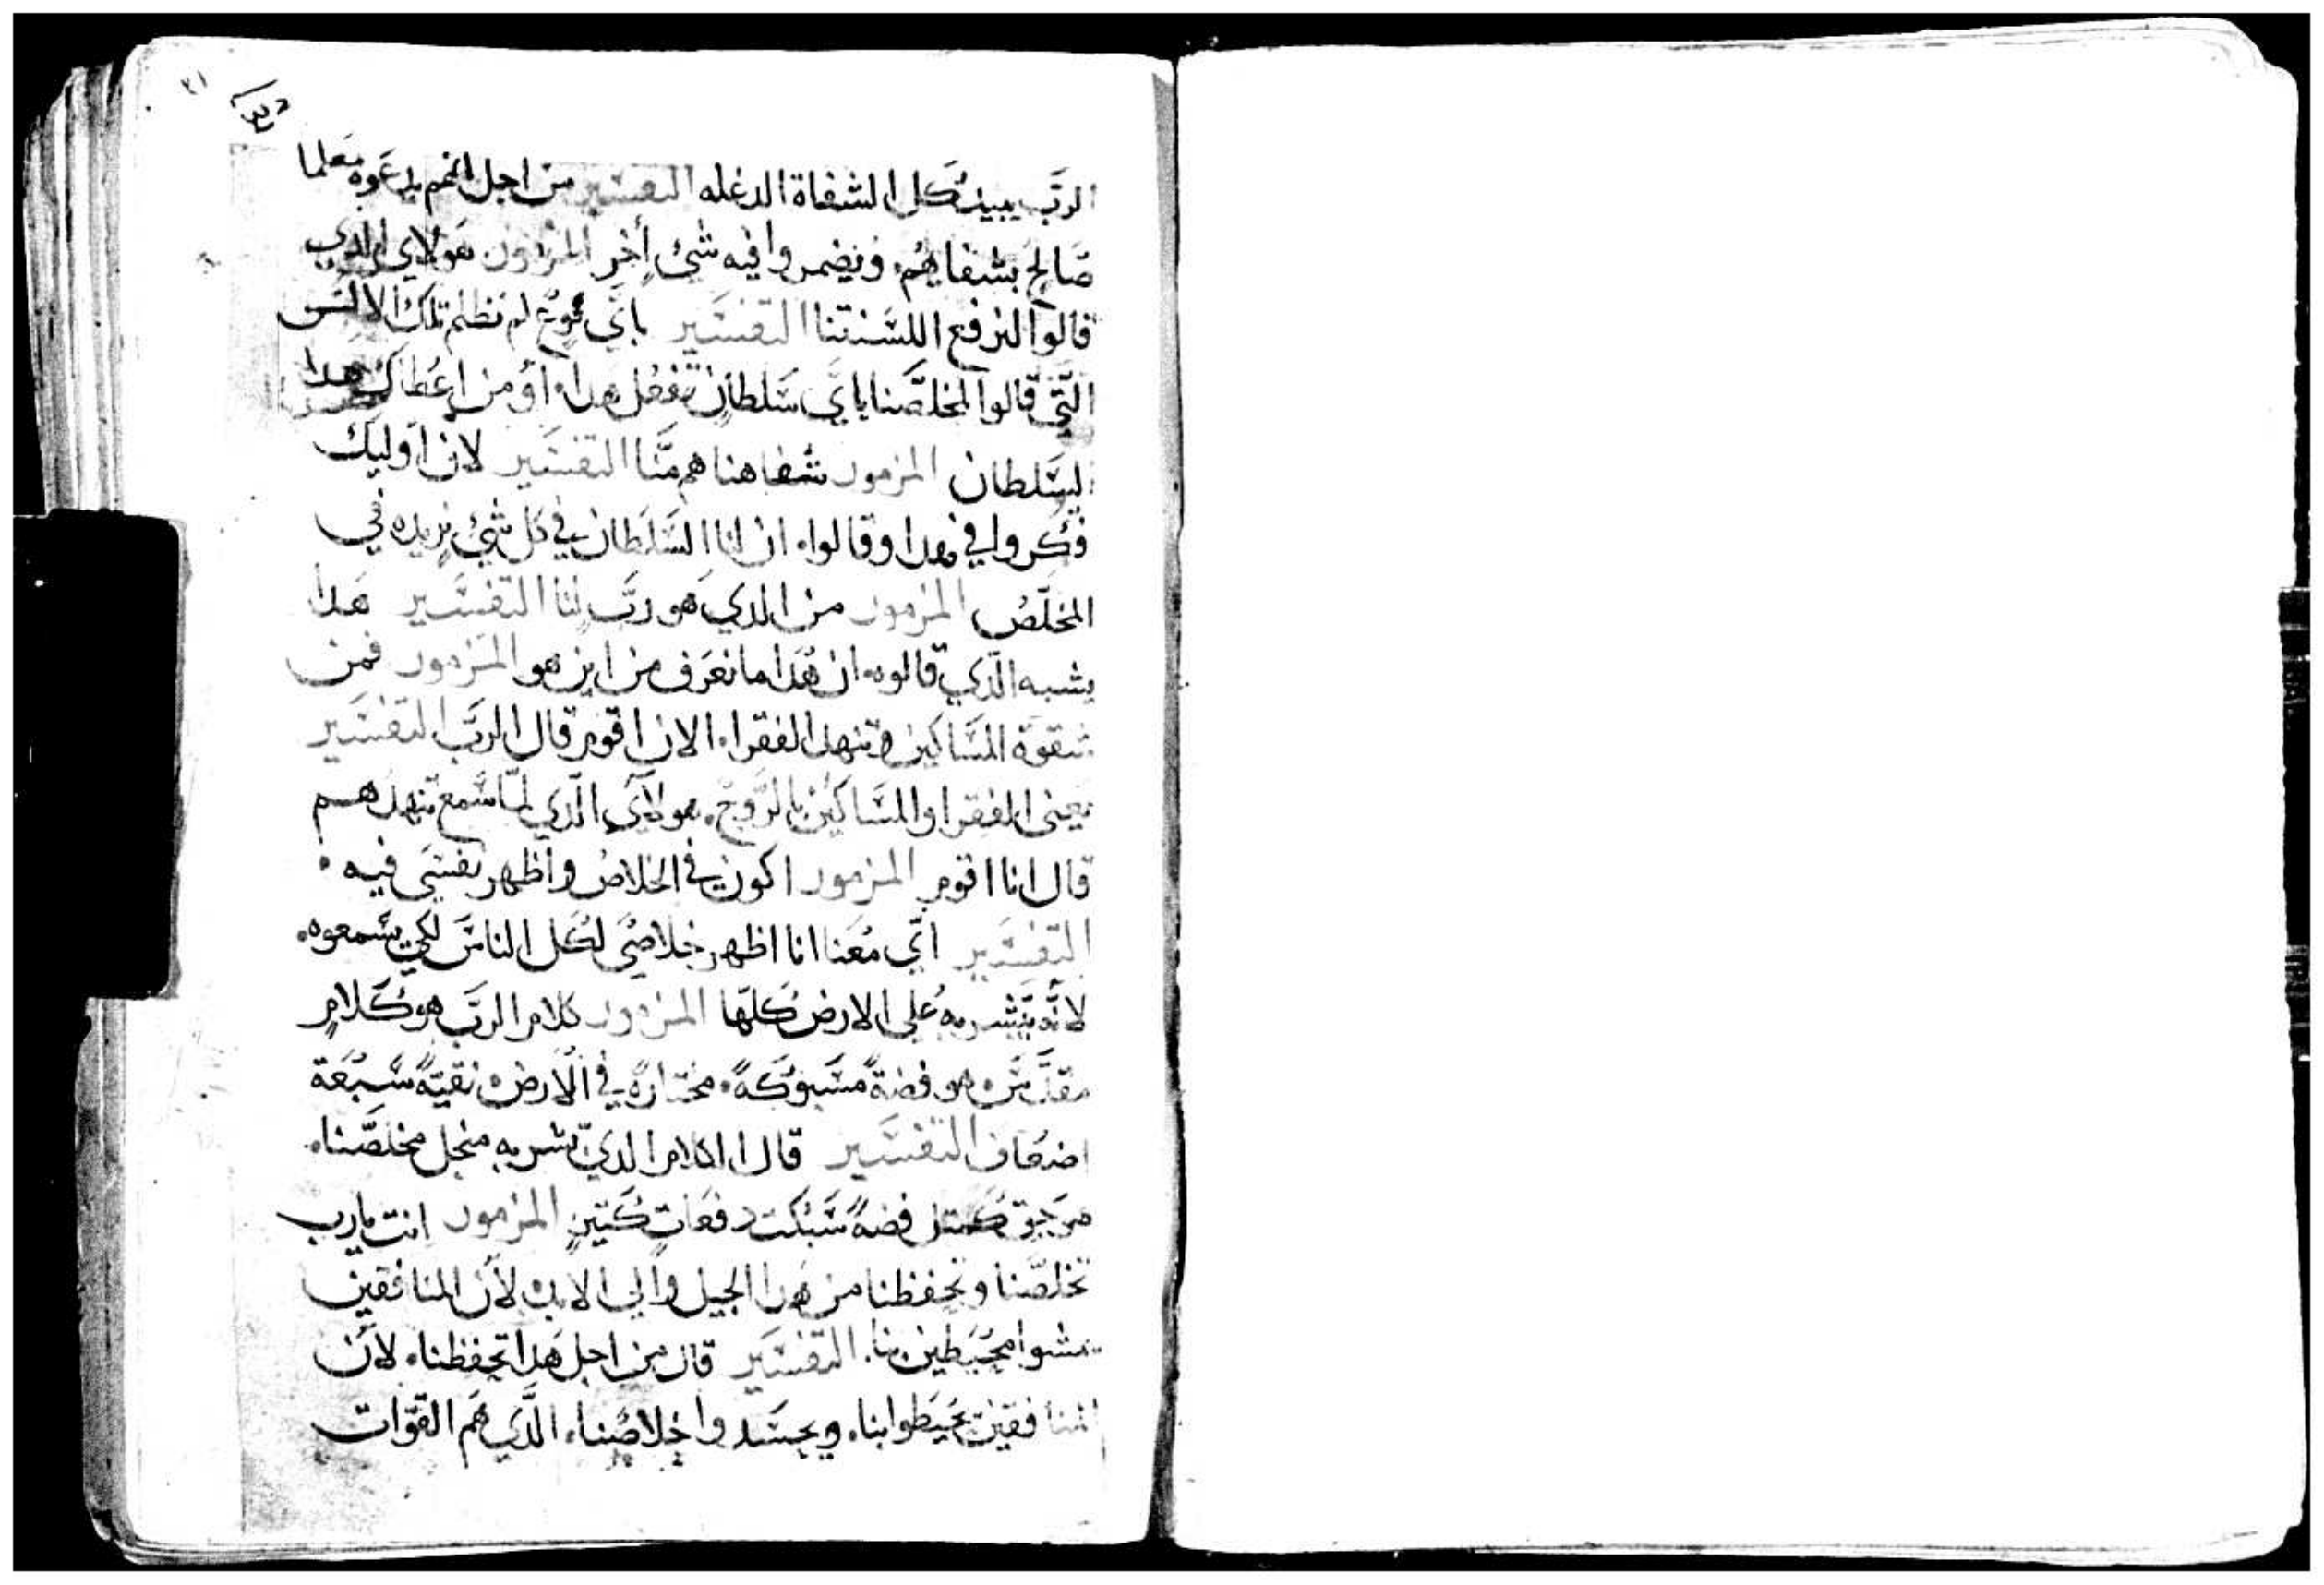 الرَّب يبيد كل الشفاة الدغله التفسير من اجل انهم يدعوه معلما
صَالح بشفاههم. ويضمروا فيه شئ أخر المزمور هَولاي الدي
قالوا لنرفع اللسَنتنا التفسَير باي نوع لم تظلم تلك الالسَن
التَّي قالوا لمخلصَّنا باي سَلطان تفعل هدا. أو من اعطاك هدا
السَلطان المزمور شفاهنا هم مَّنا التفسَير لان اوليك
فكروا في هدا وقالوا. ان لنا السَّلطَان في كل شئ نريده في
المخلّصُ المزمور من الدي هو ربَّ لنا التفسَير هَدا
يشبه الدَّي قالوه. ان هَدا ما نعَرف من اين هو المزمور فمن
شقوة المسَّاكين وتنهد الفقرا. الان اقوم قال الربَّ التفسَير
يعني الفقرا والمسَّاكين بالرَّوح. هولاي الدَّي لمّا سَمع تنهدهم
قال انا اقوم المزمور اكون في الخلاص وأظهر نفسَي فيه .
التفسَير ايّ مُعَنا انا اظهر خلاصَي لكل الناسَ لكي يسَمعوه.
لانَّه يبَّشر به عُلي الارض كلهَّا المزمور كلام الربَّ هو كَلام
مقدَّسَ. هو فضةً مسَّبوكةً. مختارة في الأرض. نقيَّةً سَبعَة
اضعَاف التفسَير قال الكلام الديّ بشر به منجل مخلصَّنا.
هو حق كمتل فضةً سَبكت دفعَات كتير المزمور انت يارب
تخلصَّنا وتحفظنا من هَدا الجيل والي الابد. لأن المنافقين
يمشوا محيَطين بنا. التفسَير قال من اجل هَدا تحفظنا. لأن
المنافقين يحَيطوا بنا. ويحسَدوا خلاصَنا. الدَّي هَم القوّات